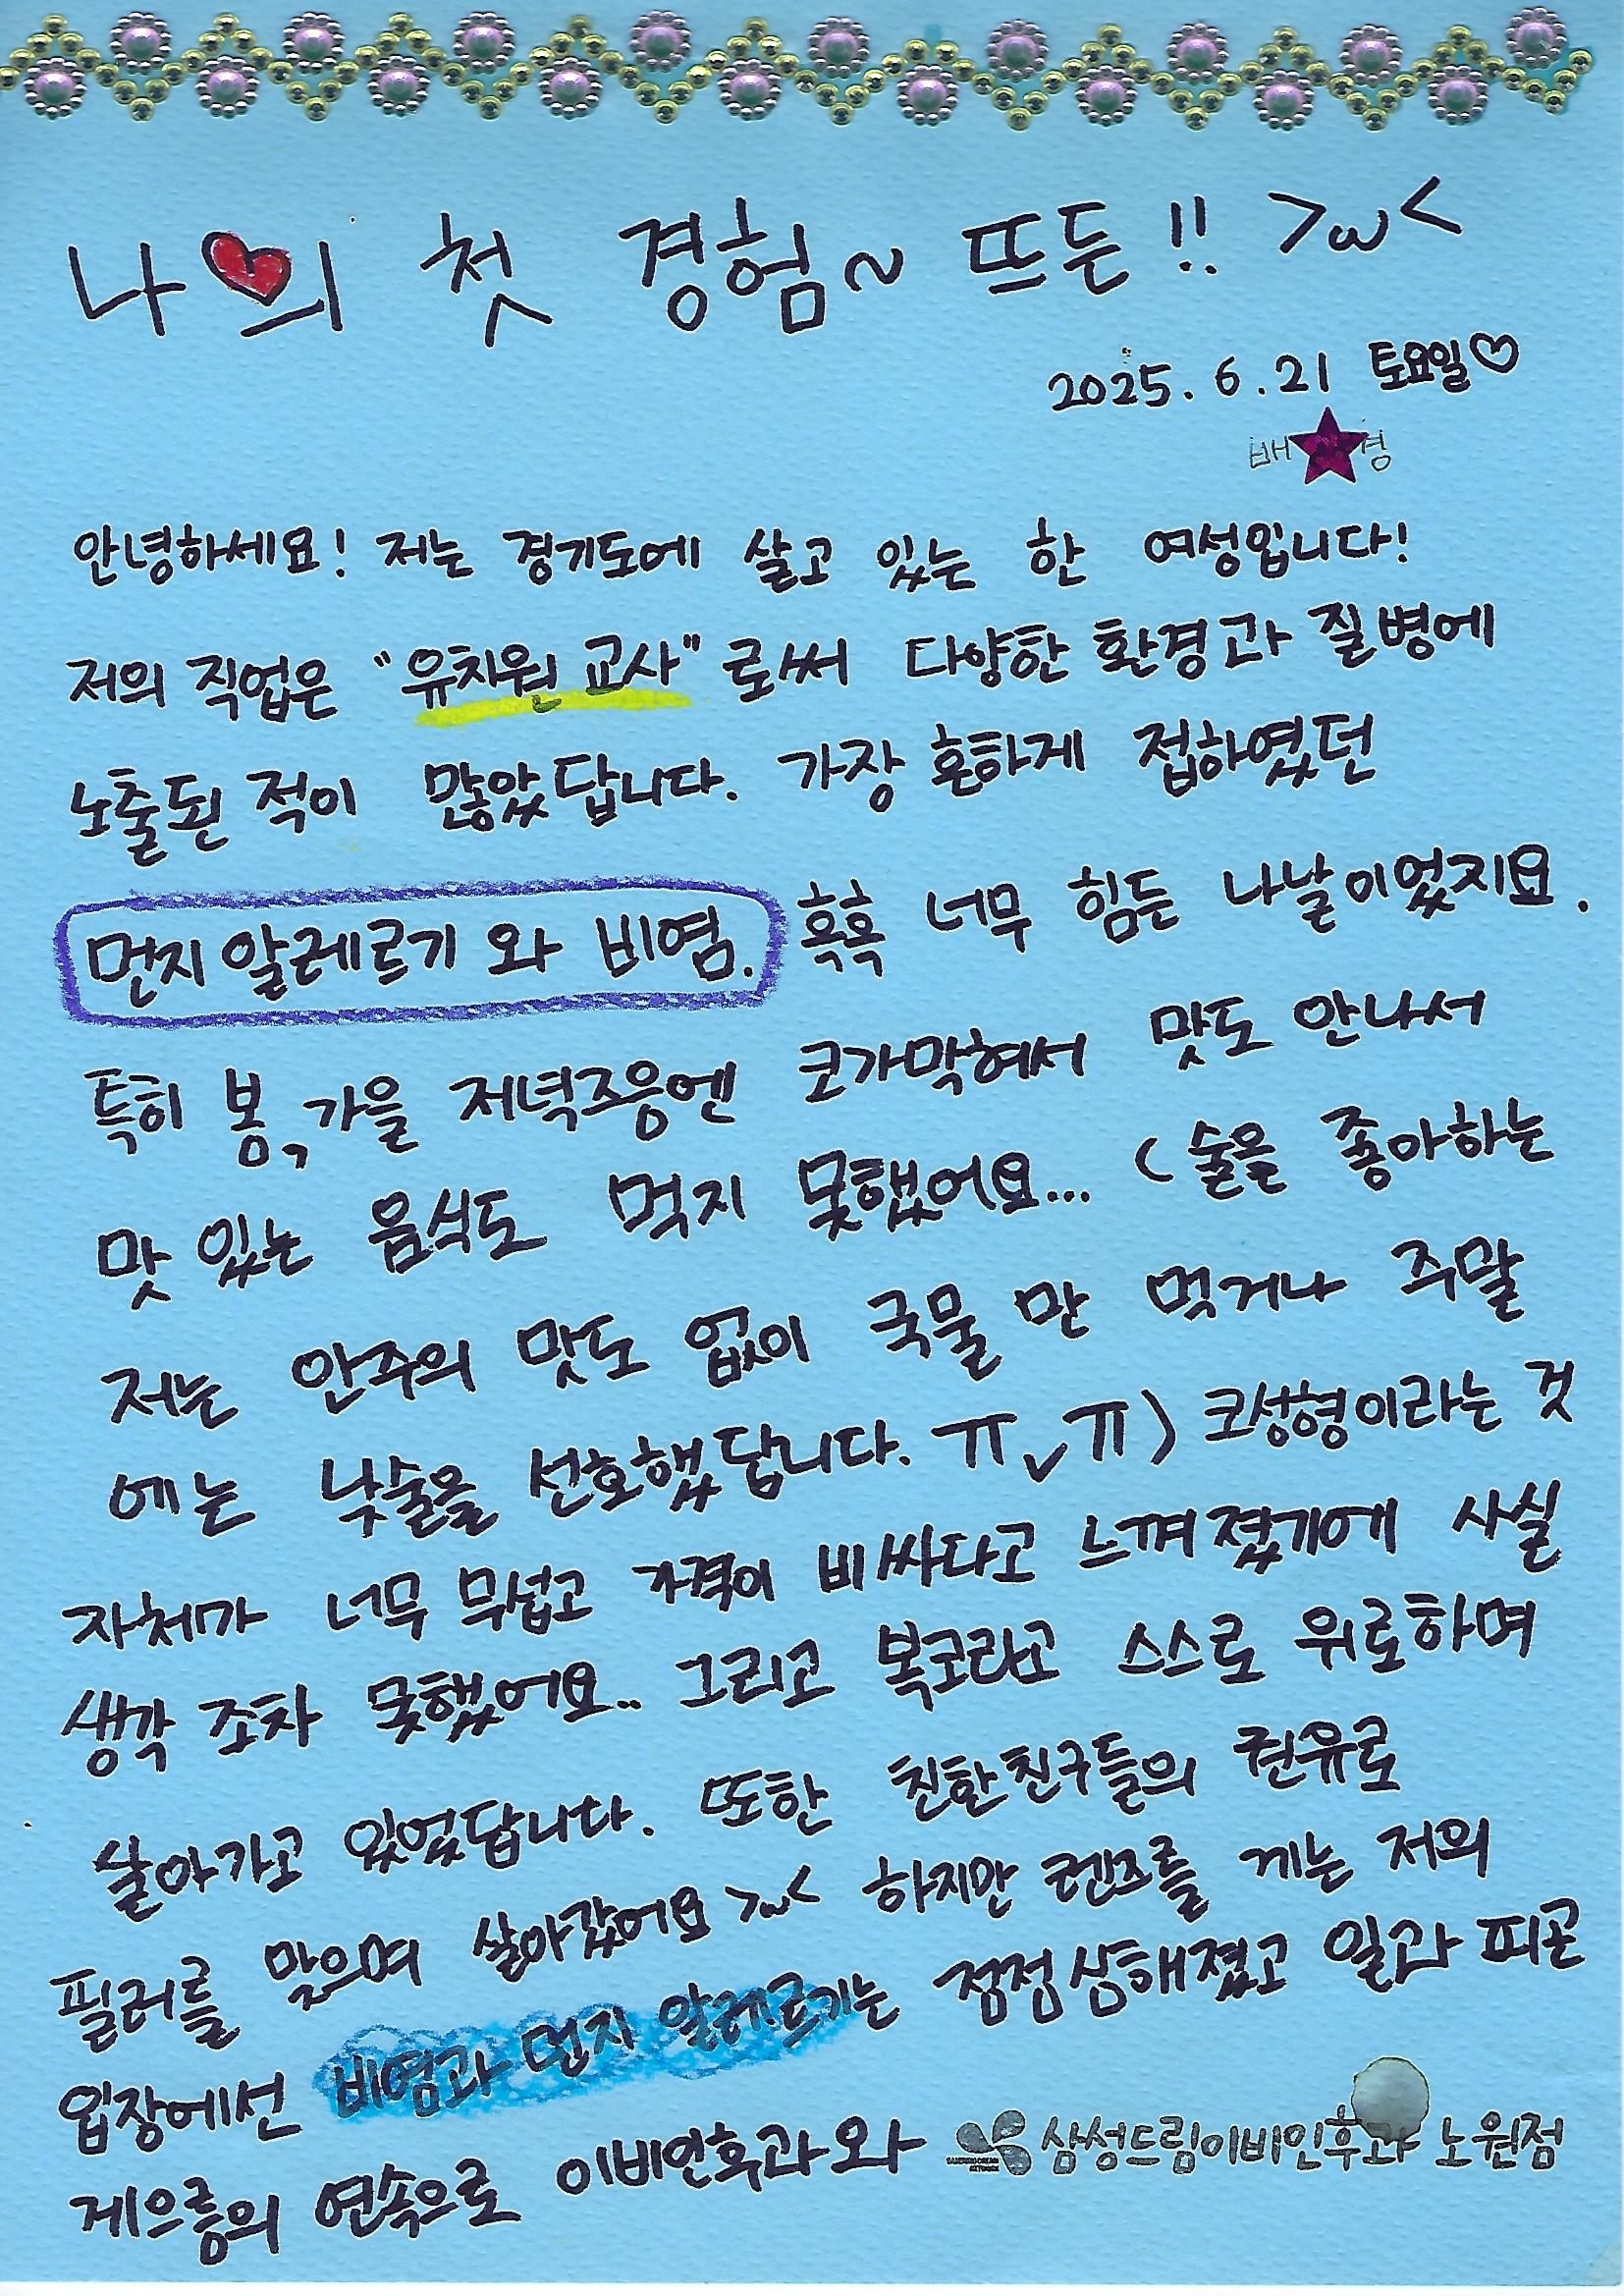 나의 첫 경험~ 뜨든!! >ω<
2025. 6. 21 토요일♡
배★경
안녕하세요! 저는 경기도에 살고 있는 한 여성입니다!
저의 직업은 "유치원 교사"로써 다양한 환경과 질병에
노출된 적이 많았답니다. 가장 흔하게 접하였던
먼지알레르기 와 비염. 흑흑 너무 힘든 나날이었지요.
특히 봄, 가을 저녁즈응엔 코가막혀서 맛도 안나서
맛 있는 음식도 먹지 못했어요... (술을 좋아하는
저는 안주의 맛도 없이 국물 만 먹거나 주말
에는 낮술을 선호했답니다. ㅠ✓ㅠ) 코성형이라는 것
자체가 너무 무섭고 가격이 비싸다고 느껴졌기에 사실
생각 조차 못했어요.. 그리고 복코라고 스스로 위로하며
살아가고 있었답니다. 또한 친한친구들의 권유로
필러를 맞으며 살아갔어요 >ω< 하지만 렌즈를 께는 저의
입장에선 비염과 먼지 알레르기는 점점상해졌고 일과 피곤
게으름의 연속으로 이비인후과와 삼성드림이비인후과 노원점